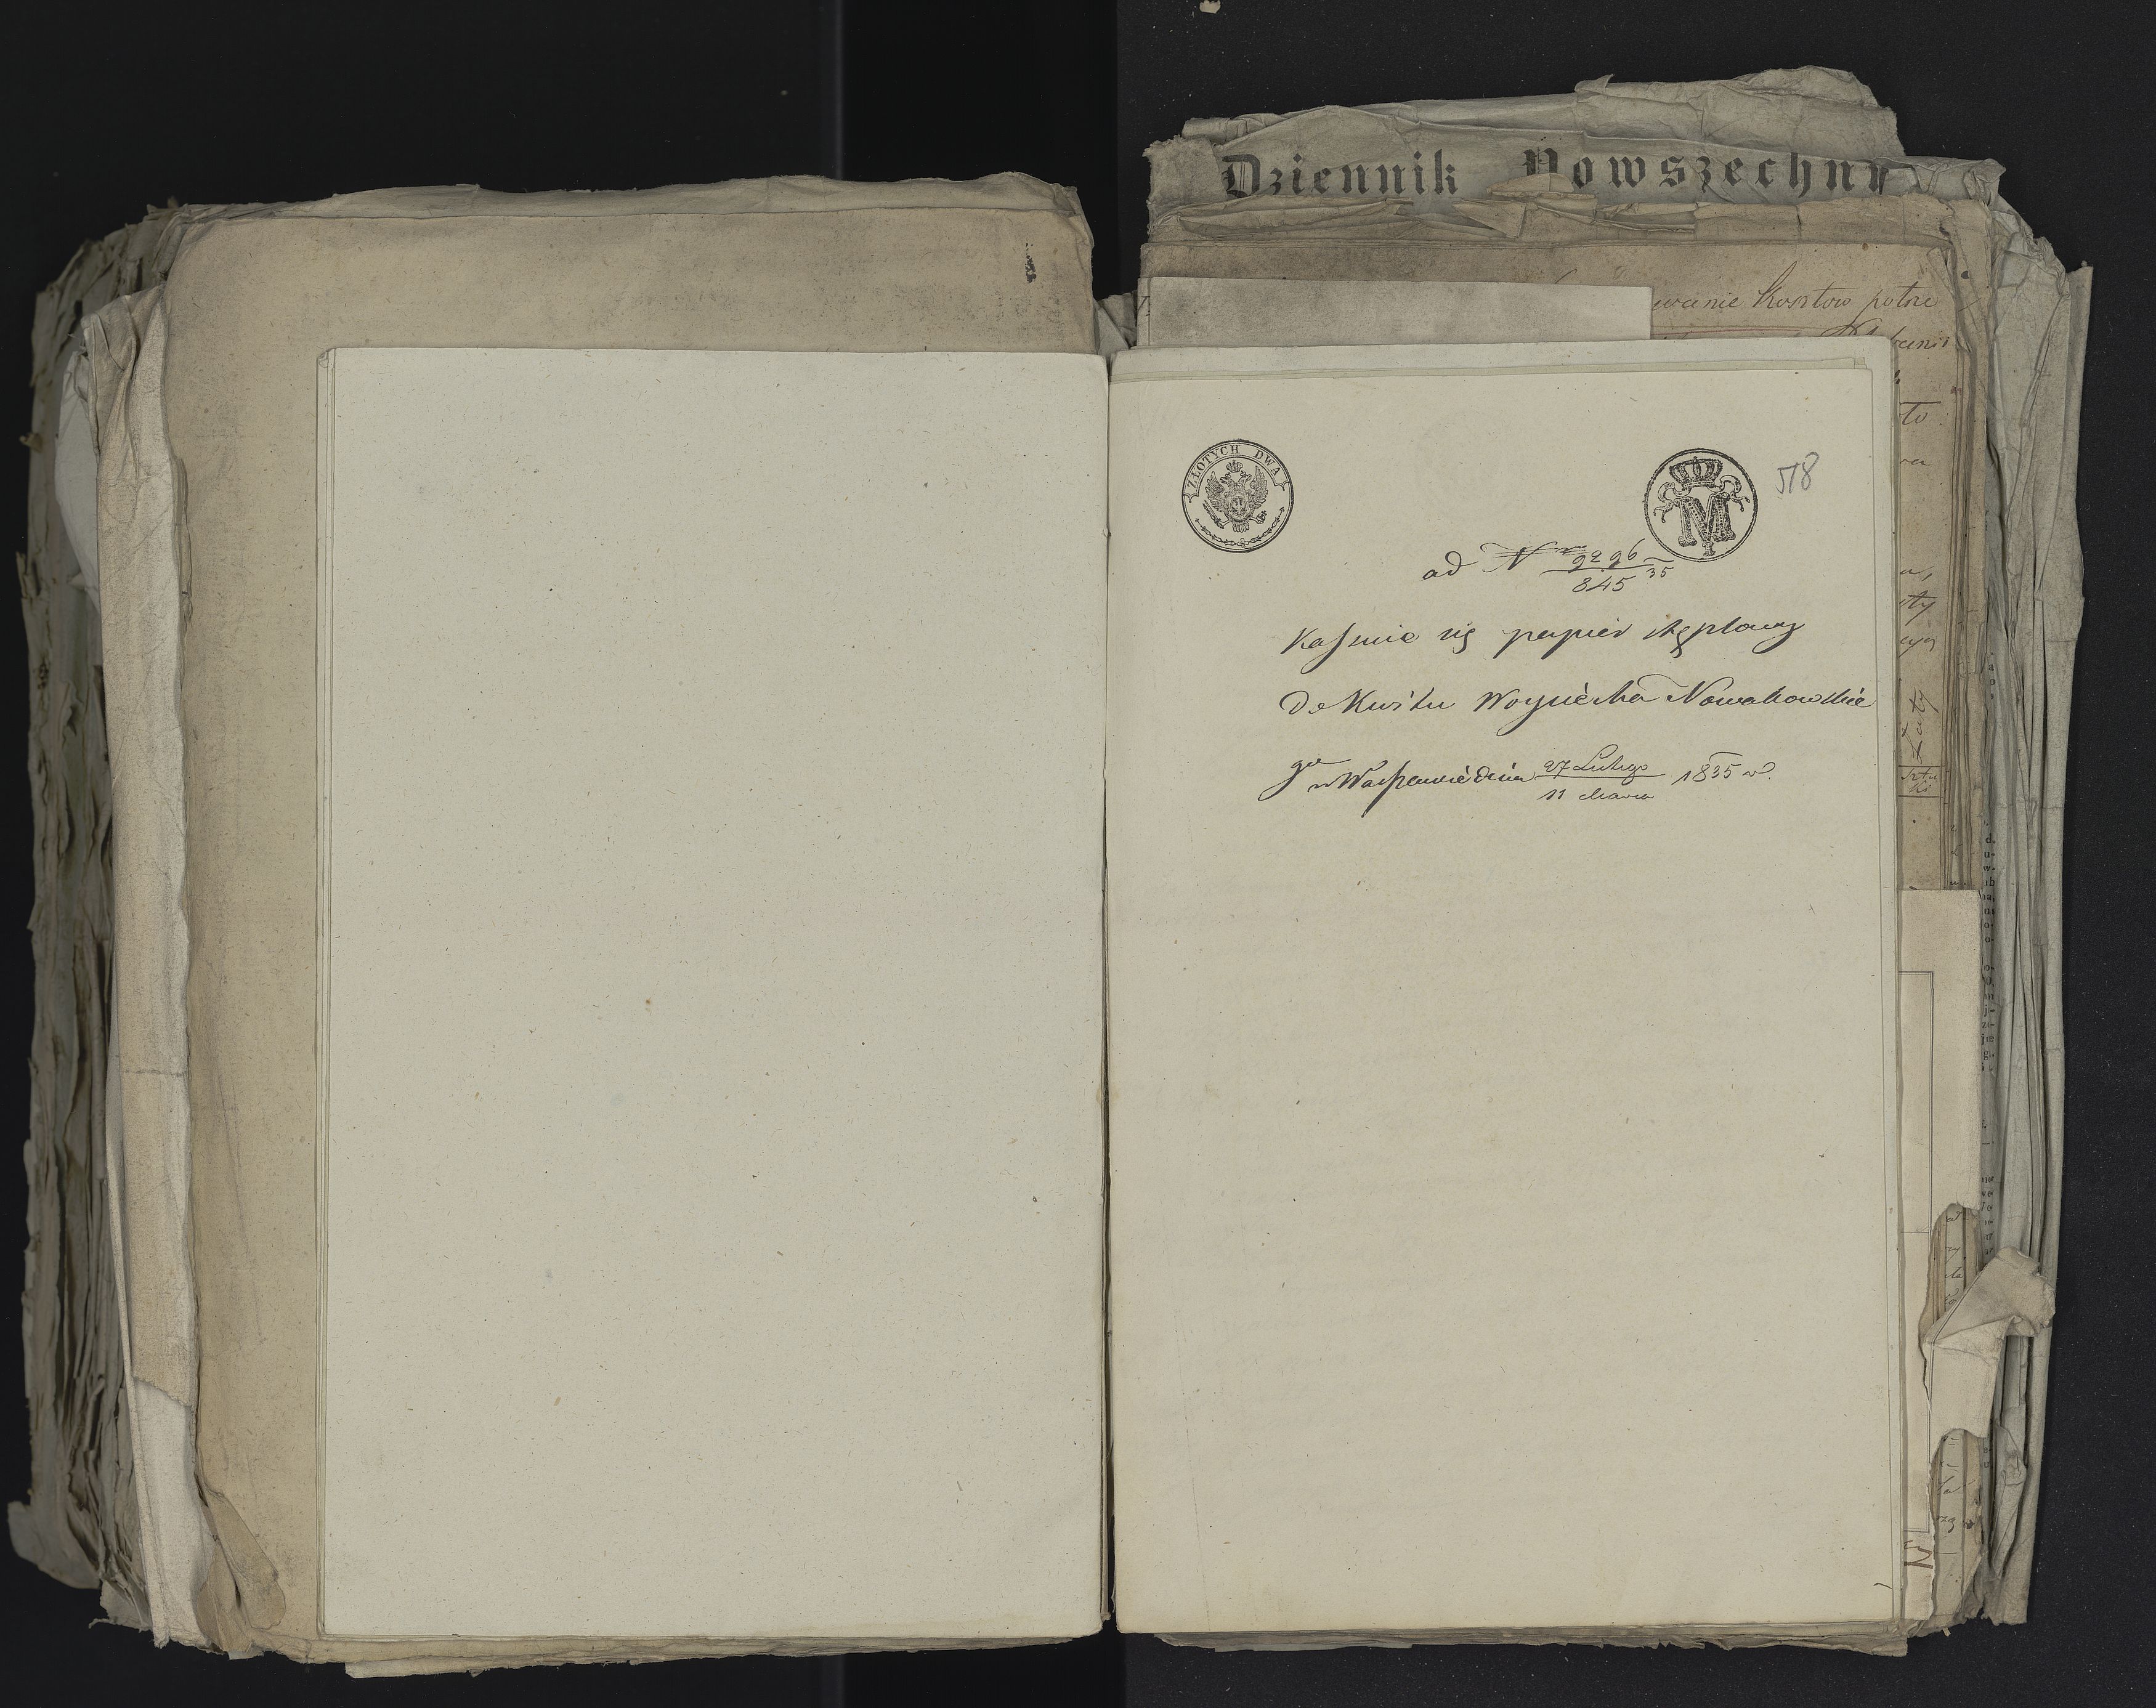 Dziennik Powszechny
wanie Kosztow potrz
ZŁOTYCH DWA
M
518
ad N 9296/845 35
Kassuie się papier stęplowy
Do Kwitu Woyciecha Nowakowskie
go w Warszawie dnia 27 Lutego/11 Marca 1835 r.